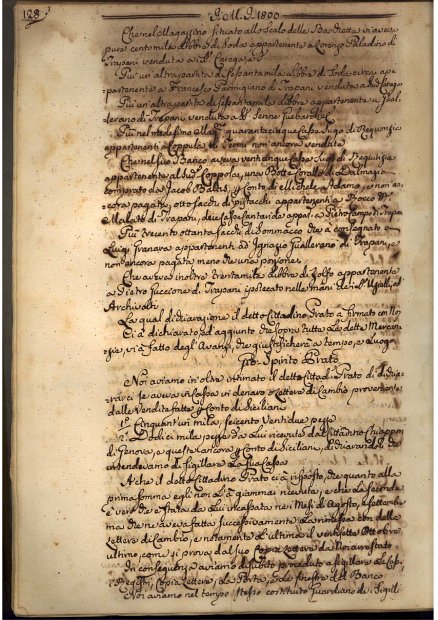 128
J. M. J. 1800
Che nel Magazzino situato allo Scalo delle Bardetta vi aveva
pure cento mila libbre di Soda appartenente a Lorenzo Paladino di
Trapani venduta a
Più un'altra partita di sessanta mila libbre di Soda circa, ap
partenente a Francesco Parmigiano di Trapani venduta
Più un'altra partita di sessanta mila libbre appartenente a
di Trapani venduta a
Più nel medesimo quaranta cinque Casse Sugo di Requirizia
appartenenti a Coppula, di Termi non ancora vendute
Che nel suo Banco aveva venti cinque Casse Sugo di Requirizia
appartenente al Sud.o Coppola, una Botte Corallo di Dalmazia
comprato da Jacob Baltes, p. Conto di Michele Adamo, e non an
cora pagato, otto sacchi di pistacchi appartenenti a Rocco M.a
Malatto di Trapani, due Casse Cantaridi appar. a Pietro Campo di Trapani
Più trecento ottanta sacchi di Sommacco che a consegnato a
Luigi Franava appartenenti ad Ignazio Guallerano di Trapani, e
non ancora pagata meno che una porzione
Che aveva inoltre trenta mila libbre di Zolfo appartenente
a Pietro Fuccione di Trapani ipotecato nelle mani dei
Archivolti
La qual dichiarazione il detto Cittadino Prato a firmato con Noi
Ci à dichiarato ed aggiunto che sopra tutte le dette Mercan
zie, vi à fatto degl'Avanzi, che giustificherà a tempo, e Luogo
Spirito Prato
Noi aviamo in oltre intimato il detto Cittad.o Prato di dichia
rarci se aveva in Cassa in denaro, o Lettere di Cambio proveniente
dalle Vendite fatte p. Conto di Siciliani
1.o Cinquant'un mila, seicento Venti due pezze
2.o Dodici mila pezze da Lui ricevute dal Cittadino Chiappori
di Genova, e queste ancora p. Conto di Siciliani, dichiarandoli che
intendevamo di sigillare la sua Cassa
A che il detto Cittadino Prato ci à risposto, che quanto alla
prima somma egli non l'à giammai ricevuta, e che la seconda
è vero che è stata da Lui incassata nei Mesi di Agosto, e settembre
ma che ne aveva fatta successivamente la rimessa con delle
Lettere di Cambio, e notamente l'ultima il ventisette Ottobre
ultimo, come si prova dal suo Copia Lettere da Noi riscontrato.
In conseguenza aviamo di subito proceduto a sigillare la Cassa
i Registri, Copia Lettere, la Porta, e le finestre del d.o Banco.
Noi aviamo nel tempo stesso costituto Guardiano de' Sigilli